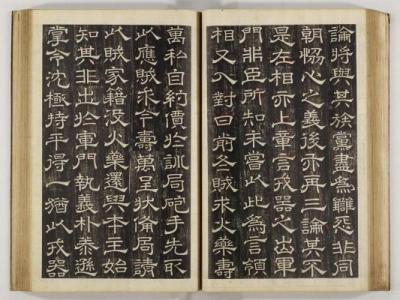 論將與其徒黨盡為讎怨非同
朝恊心之義後亦再三論其不
是左相亦上章言戎器之出軍
門非臣所知未嘗以此為言領
相又入對曰前冬賊求火藥壽
萬私自約價於訓局砲手先取
以應賊求今壽萬呈狀備局請
以賊家籍沒火藥還與本主始
知其非出於軍門執義朴泰遜
掌令沈極持平得一猶以戎器